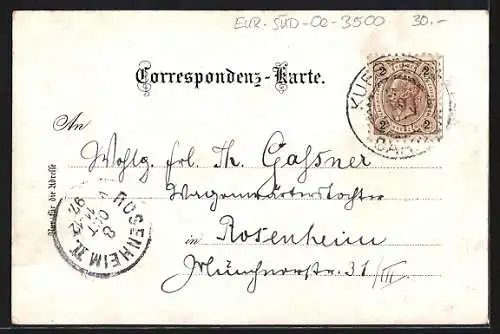 EUR-SÜD-OE-3500 30.-
Correspondenz-Karte.
2 2
2 2
KUF
BAHN
An
Wohlg. frl. Th. Gassner
Wagenwärterstochter
in Rosenheim
Münchnerstr. 31/III.
Nur für die Adresse
ROSENHEIM II.
8
OKT
97